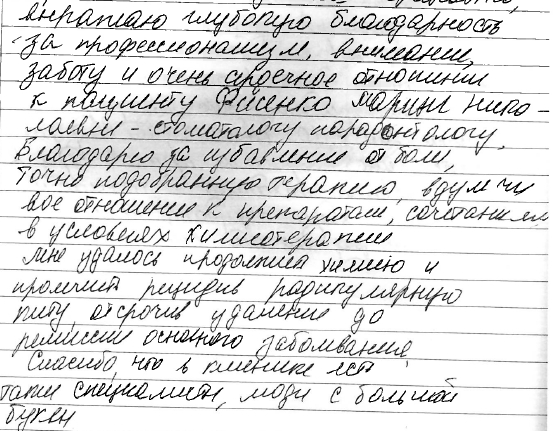 выражаю глубокую благодарность
за профессионализм, внимание,
заботу и очень сердечное отношение
к пациенту Фисенко Марине Нико-
лаевне - стоматологу парадонтологу.
Благодарю за избавление от боли,
точно подобранную терапию, вдумчи
вое отношение к препаратам, сочетанием
в условиях химиотерапии
мне удалось продолжить химию и
пролечить рецидив радикулярную
кисту, отсрочив удаление до
ремиссии основного заболевания.
Спасибо, что в клинике есть
такие специалисты, люди с большой
буквы